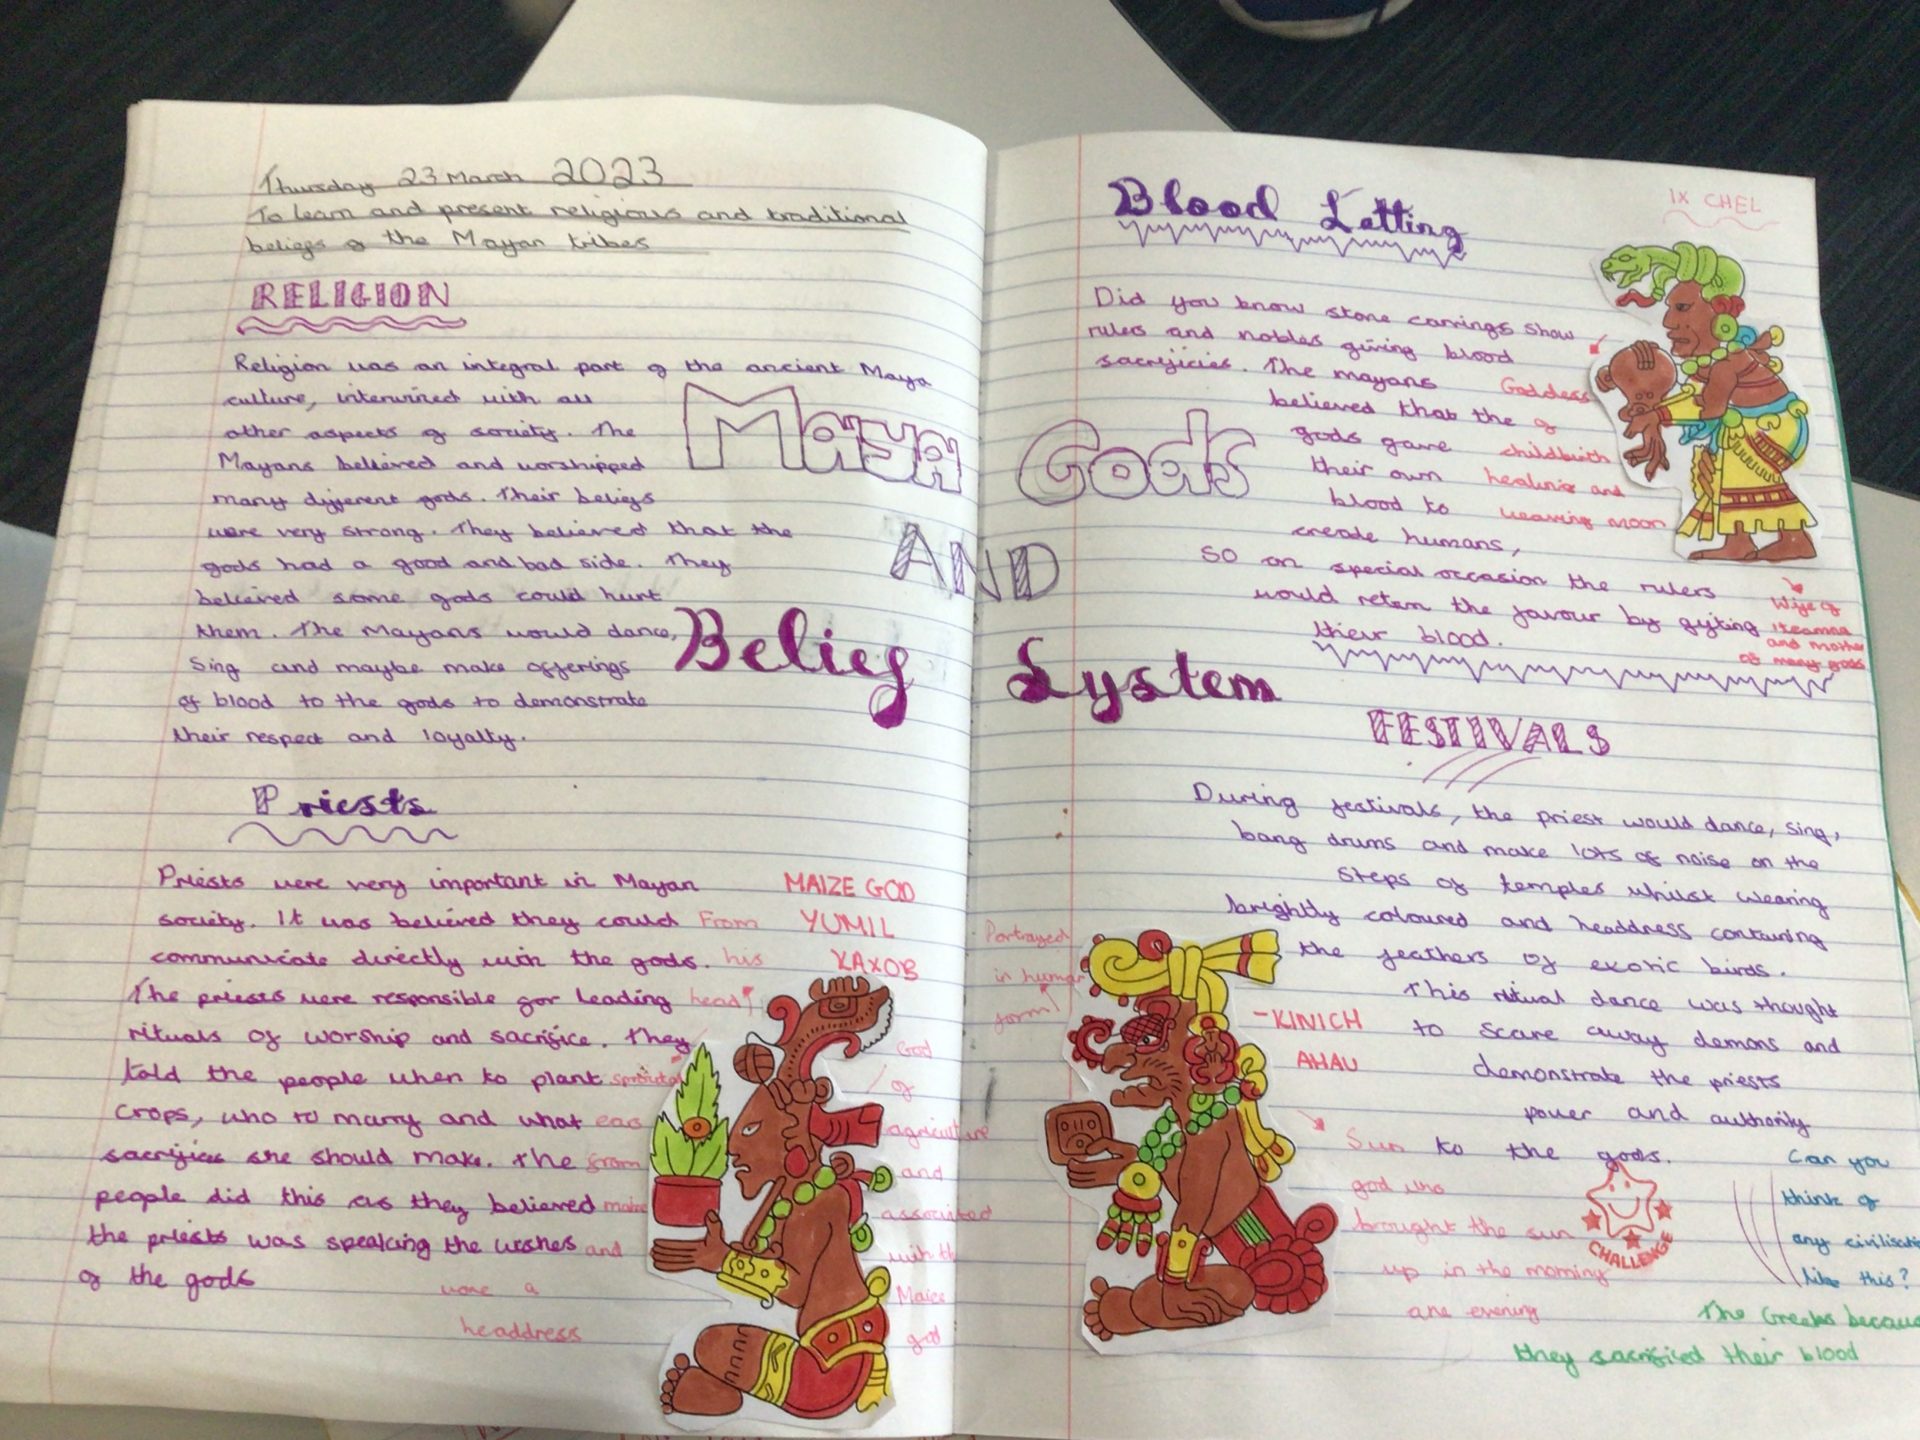 Thursday 23 March 2023
To learn and present religious and traditional
beliefs of the Mayan tribes
RELIGION
Religion was an integral part of the ancient Maya
culture, interwined with all
other aspects of society. The
Mayans believed and worshipped
many different gods. Their beliefs
were very strong. They believed that the
gods had a good and bad side. They
believed some gods could hurt
them. The Mayans would dance,
Sing and maybe make offerings
of blood to the gods to demonstrate
their respect and loyalty.
Priests
Priests were very important in Mayan
society. It was believed they could
communicate directly with the gods.
The priests were responsible for leading
rituals of worship and sacrifice. They
told the people when to plant
crops, who to marry and what
sacrifices she should make. The
people did this as they believed
the priests was speaking the wishes
of the gods
From
his
head
sprouted
ears
from
maize
and
wore a
headdress
MAIZE GOD
YUMIL
KAXOB
God
of
agriculture
and
associated
with th
Maize
god
Maya Gods
AND
Belief System
Blood Letting
Did you know stone carvings show
rulers and nobles giving blood
sacrificies. The mayans
believed that the
gods gave
their own
blood to
create humans,
so on special occasion the rulers
would retern the favour by gifting
their blood.
IX CHEL
Goddess
of
childbirth
healing and
weaving moon
Wife of
Itzamna
and mother
of many gods
FESTIVALS
During festivals, the priest would dance, sing,
bang drums and make lots of noise on the
steps of temples whilst wearing
brightly coloured and headdress containing
the feathers of exotic birds.
This ritual dance was thought
to scare away demons and
demonstrate the priests
power and authority
to the gods.
Portrayed
in human
form
-KINICH
AHAU
Sun
god who
brought the sun
up in the morning
ane evening
CHALLENGE
Can you
think of
any
like this?
The Greeks
they sacrificed their blood